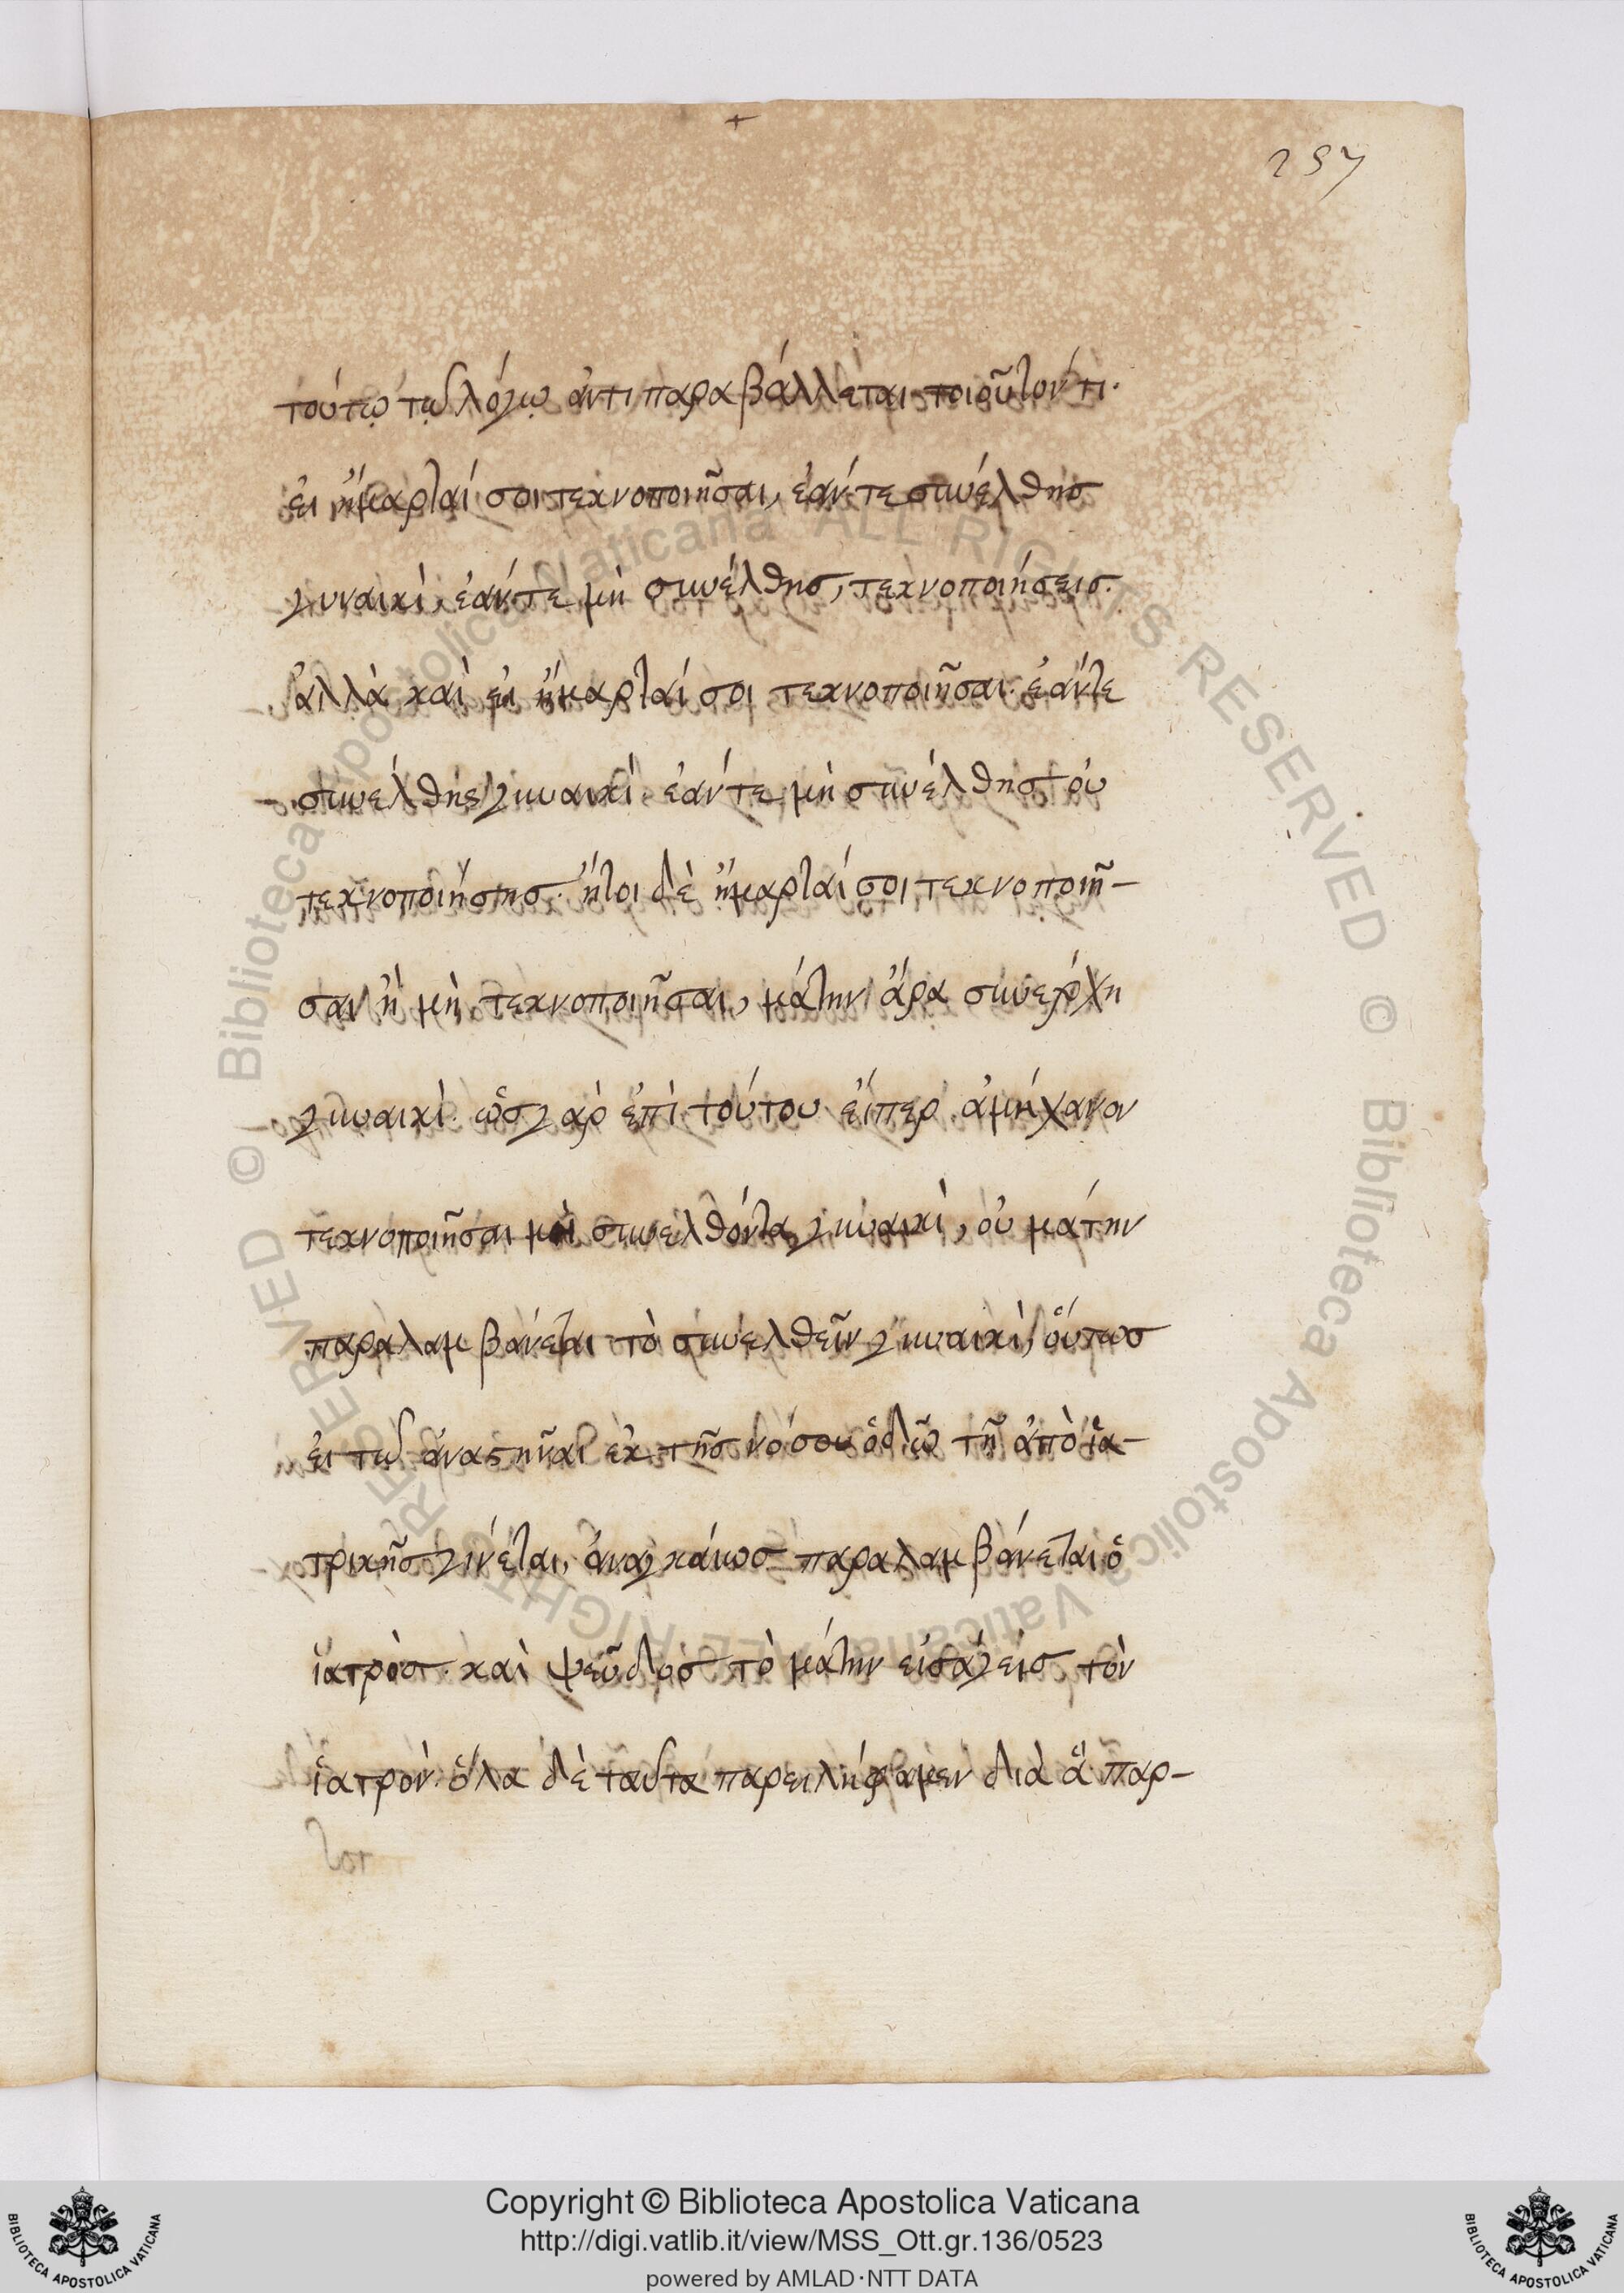 257
τούτῳ τῷ λόγῳ ἀντιπαραβάλλεται τοιοῦτόν τι·
εἰ ἥμαρταί σοι τεκνοποιῆσαι, ἐάν τε συνέλθησ
γυναικὶ, ἐάν τε μὴ συνέλθησ, τεκνοποιήσεισ.
ἀλλὰ καὶ εἰ ἥμαρταί σοι τεκνοποιῆσαι· ἐάν τε
συνέλθης γυναικὶ· ἐάν τε μὴ συνέλθησ οὐ
τεκνοποιήσησ· ἤτοι δὲ ἥμαρταί σοι τεκνοποιῆ-
σαι ἢ μὴ τεκνοποιῆσαι, μάτην ἄρα συνέρχη
γυναικὶ· ὡσ γὰρ ἐπὶ τούτου εἴπερ ἀμήχανον
τεκνοποιῆσαι μὴ συνελθόντα γυναικὶ, οὐ μάτην
παραλαμβάνεται τὸ συνελθεῖν γυναικὶ, οὕτωσ
εἰ τῷ ἀναστῆναι ἐκ τῆσ νόσου ὁδῷ τῇ ἀπὸ ἰα-
τρικῆσ γίνεται, ἀναγκάιωσ παραλαμβάνεται ὁ
ἰατρὸσ· καὶ ψεῦδοσ τὸ μάτην εἰσάγεισ τὸν
ἰατρόν· ὅλα δὲ ταῦτα παρειλήφαμεν διὰ ἃ παρ-
Copyright © Biblioteca Apostolica Vaticana
http://digi.vatlib.it/view/MSS_Ott.gr.136/0523
powered by AMLAD·NTT DATA
© Biblioteca Apostolica Vaticana ALL RIGHTS RESERVED © Biblioteca Apostolica Vaticana ALL RIGHTS RESERVED
BIBLIOTECA APOSTOLICA VATICANA
BIBLIOTECA APOSTOLICA VATICANA